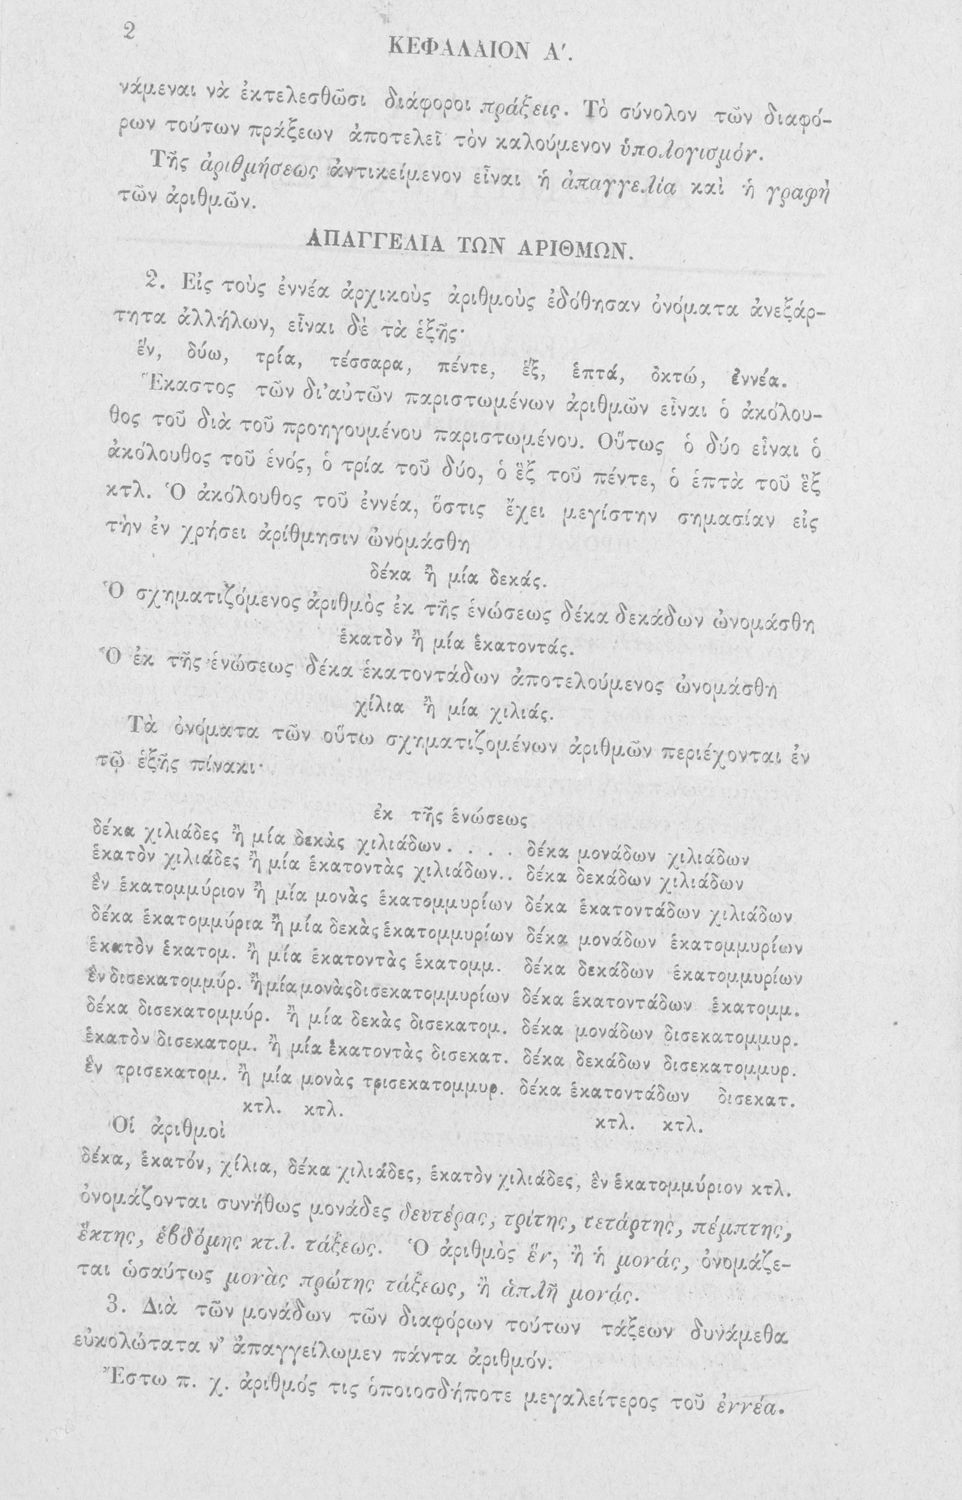 2
ΚΕΦΑΛΑΙΟΝ Α'.
νάμεναι νὰ ἐκτελεσθῶσι διάφοροι πράξεις. Τὸ σύνολον τῶν διαφό-
ρων τούτων πράξεων ἀποτελεῖ τὸν καλούμενον ὑπολογισμόν.
Τῆς ἀριθμήσεως ἀντικείμενον εἶναι ἡ ἀπαγγελία καὶ ἡ γραφὴ
τῶν ἀριθμῶν.
ΑΠΑΓΓΕΛΙΑ ΤΩΝ ΑΡΙΘΜΩΝ.
2. Εἰς τοὺς ἐννέα ἀρχικοὺς ἀριθμοὺς ἐδόθησαν ὀνόματα ἀνεξάρ-
τητα ἀλλήλων, εἶναι δὲ τὰ ἑξῆς·
ἕν, δύω, τρία, τέσσαρα, πέντε, ἕξ, ἑπτά, ὀκτώ, ἐννέα.
Ἕκαστος τῶν δι' αὐτῶν παριστωμένων ἀριθμῶν εἶναι ὁ ἀκόλου-
θος τοῦ διὰ τοῦ προηγουμένου παριστωμένου. Οὕτως ὁ δύο εἶναι ὁ
ἀκόλουθος τοῦ ἑνός, ὁ τρία τοῦ δύο, ὁ ἓξ τοῦ πέντε, ὁ ἑπτὰ τοῦ ἓξ
κτλ. Ὁ ἀκόλουθος τοῦ ἐννέα, ὅστις ἔχει μεγίστην σημασίαν εἰς
τὴν ἐν χρήσει ἀρίθμησιν ὠνόμάσθη
δέκα ἢ μία δεκάς.
Ὁ σχηματιζόμενος ἀριθμὸς ἐκ τῆς ἑνώσεως δέκα δεκάδων ὠνομάσθη
ἑκατὸν ἢ μία ἑκατοντάς.
Ὁ ἐκ τῆς ἑνώσεως δέκα ἑκατοντάδων ἀποτελούμενος ὠνομάσθη
χίλια ἢ μία χιλιάς.
Τὰ ὀνόματα τῶν οὕτω σχηματιζομένων ἀριθμῶν περιέχονται ἐν
τῷ ἑξῆς πίνακι·
ἐκ τῆς ἑνώσεως
δέκα χιλιάδες ἢ μία δεκὰς χιλιάδων. . . . δέκα μονάδων χιλιάδων
ἑκατὸν χιλιάδες ἢ μία ἑκατοντὰς χιλιάδων.. δέκα δεκάδων χιλιάδων
ἓν ἑκατομμύριον ἢ μία μονὰς ἑκατομμυρίων δέκα ἑκατοντάδων χιλιάδων
δέκα ἑκατομμύρια ἢ μία δεκὰς ἑκατομμυρίων δέκα μονάδων ἑκατομμυρίων
ἑκατὸν ἑκατομ. ἢ μία ἑκατοντὰς ἑκατομμ. δέκα δεκάδων ἑκατομμυρίων
ἓν δισεκατομμύρ. ἢ μία μονὰς δισεκατομμυρίων δέκα ἑκατοντάδων ἑκατομμ.
δέκα δισεκατομμύρ. ἢ μία δεκὰς δισεκατομ. δέκα μονάδων δισεκατομμυρ.
ἑκατὸν δισεκατομ. ἢ μία ἑκατοντὰς δισεκατ. δέκα δεκάδων δισεκατομμυρ.
ἓν τρισεκατομ. ἢ μία μονὰς τρισεκατομμυρ. δέκα ἑκατοντάδων δισεκατ.
κτλ. κτλ. κτλ. κτλ.
Οἱ ἀριθμοὶ
δέκα, ἑκατόν, χίλια, δέκα χιλιάδες, ἑκατὸν χιλιάδες, ἓν ἑκατομμύριον κτλ.
ὀνομάζονται συνήθως μονάδες δευτέρας, τρίτης, τετάρτης, πέμπτης,
ἕκτης, ἑβδόμης κτλ. τάξεως. Ὁ ἀριθμὸς ἕν, ἢ ἡ μονάς, ὀνομάζε-
ται ὡσαύτως μονὰς πρώτης τάξεως, ἢ ἁπλῆ μονάς.
3. Διὰ τῶν μονάδων τῶν διαφόρων τούτων τάξεων δυνάμεθα
εὐκολώτατα ν' ἀπαγγείλωμεν πάντα ἀριθμόν.
Ἔστω π. χ. ἀριθμός τις ὁποιοσδήποτε μεγαλείτερος τοῦ ἐννέα.